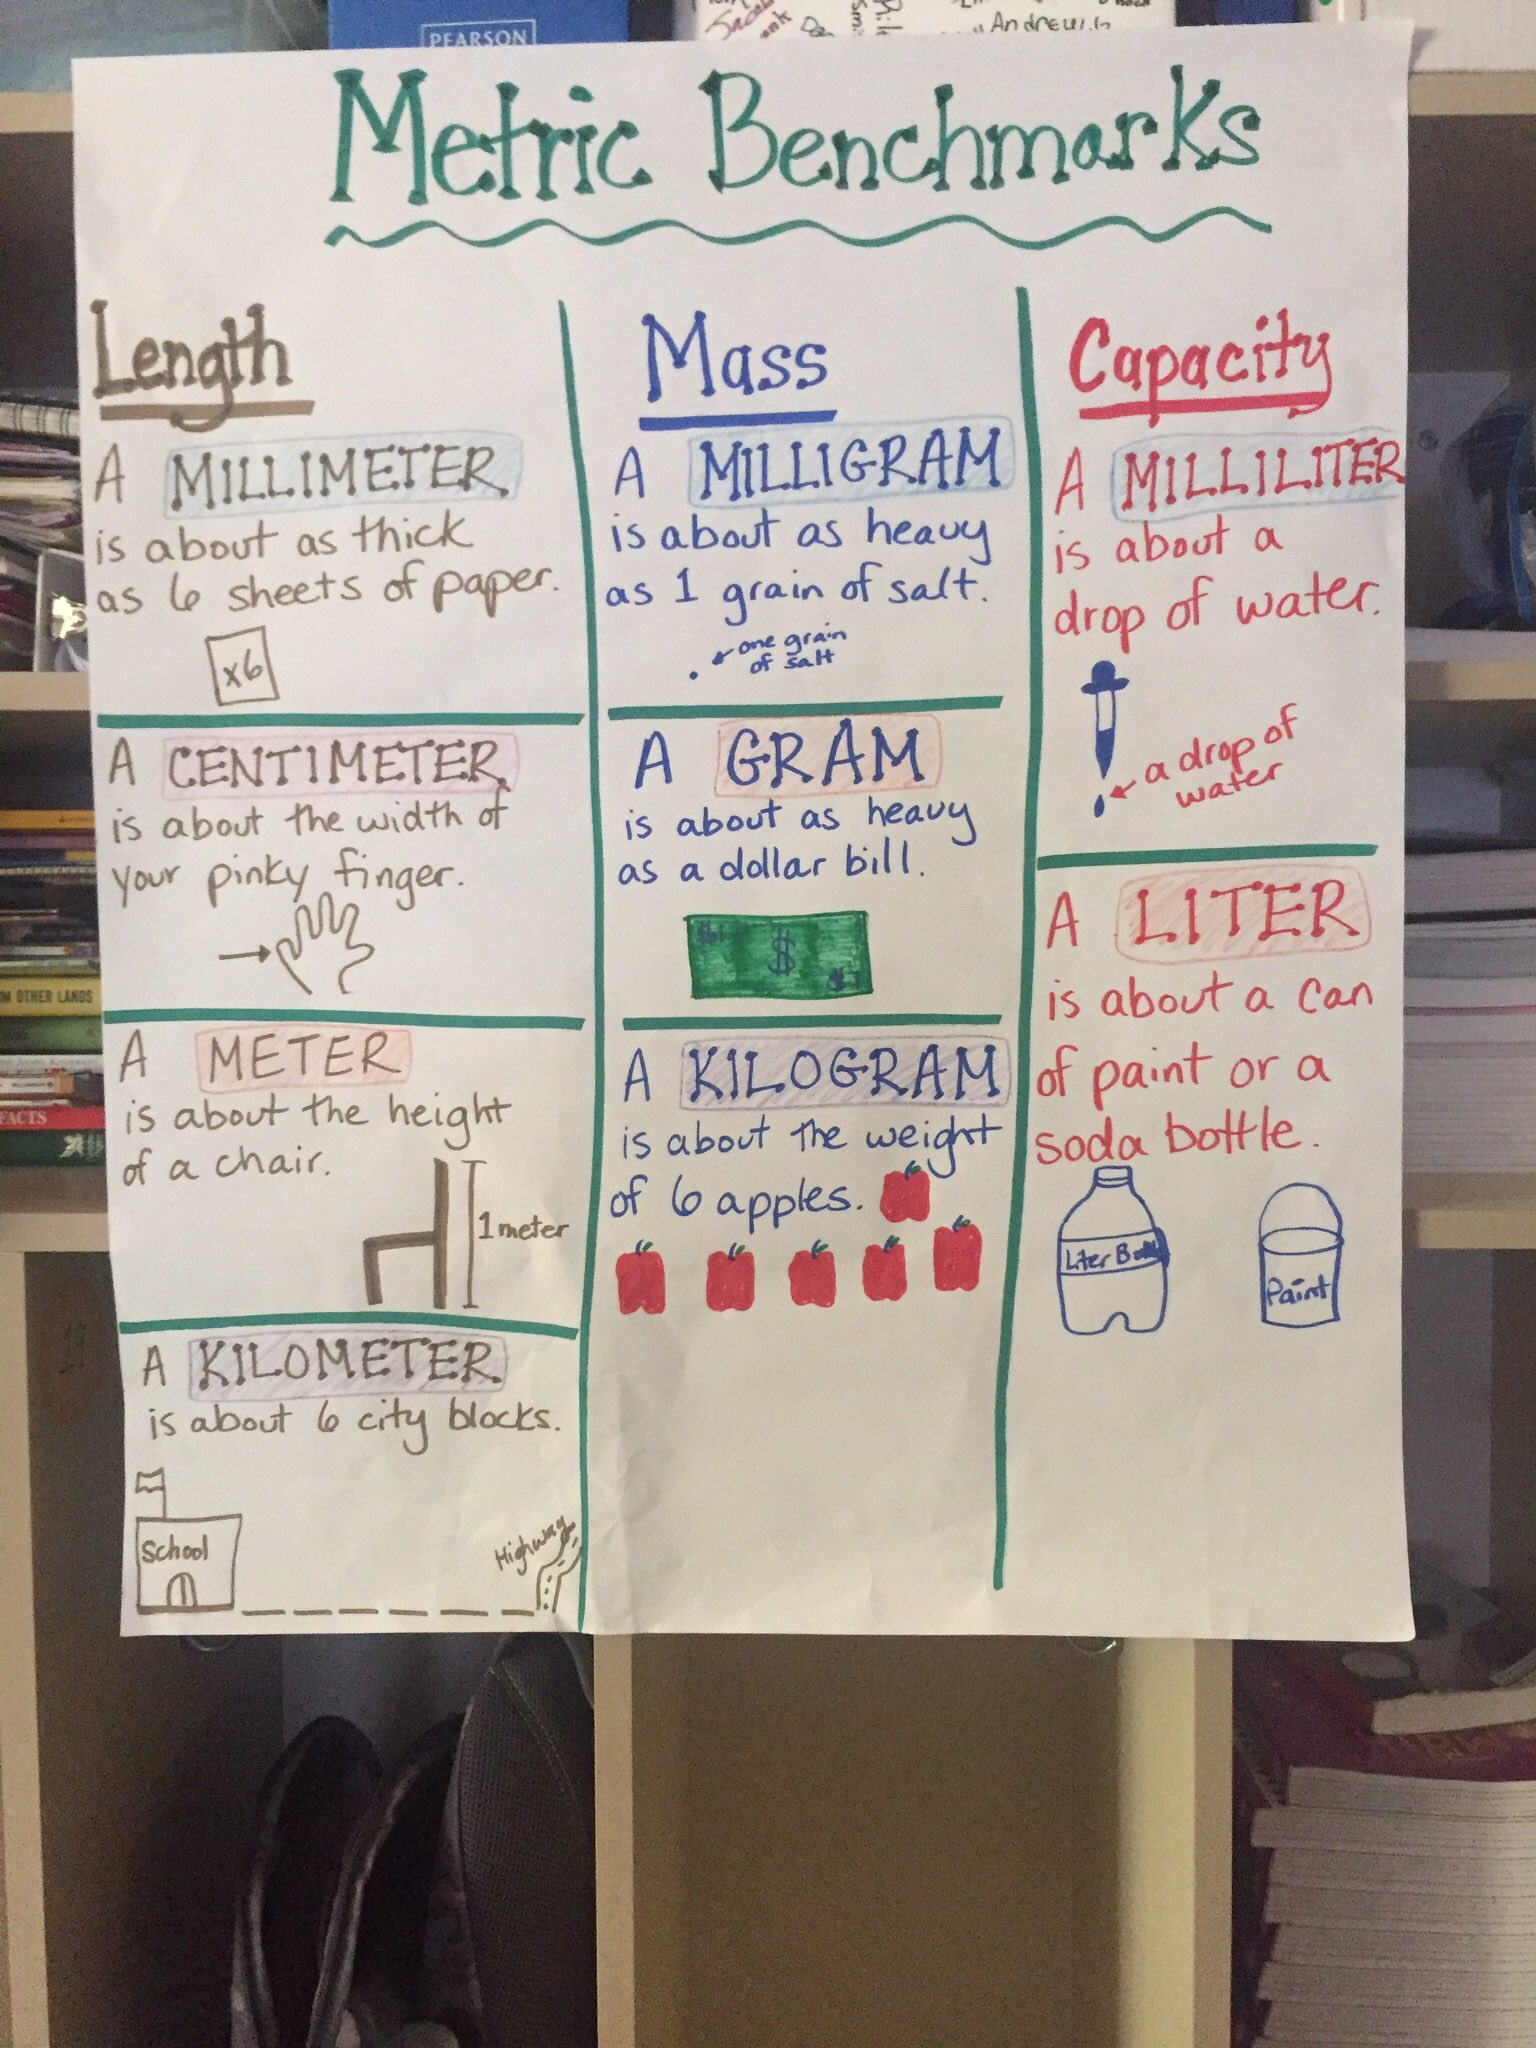 PEARSON
Andrew.G
Metric Benchmarks
Length
A MILLIMETER
is about as thick
as 6 sheets of paper.
x6
A CENTIMETER
is about the width of
your pinky finger.
A METER
is about the height
of a chair.
1 meter
A KILOMETER
is about 6 city blocks.
School
Highway
Mass
A MILLIGRAM
is about as heavy
as 1 grain of salt.
one grain
of salt
A GRAM
is about as heavy
as a dollar bill.
$1
$
$1
A KILOGRAM
is about the weight
of 6 apples.
Capacity
A MILLILITER
is about a
drop of water.
a drop of
water
A LITER
is about a can
of paint or a
soda bottle.
Liter
Paint
OTHER LANDS
FACTS